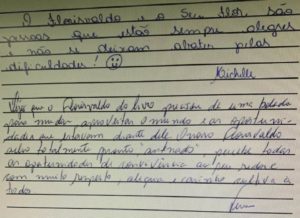 O Florisvaldo e o Seu Flor, são
pessoas que estão sempre alegres
e não se deixam abater pelas
dificuldades! ☺
Michelle
que o Florisvaldo do livro precisou de uma pedrada
para mudar, aproveitar o mundo e as oportuni-
dades que estavam diante dele. O nosso Florisvaldo
acho totalmente pronto "antenado" percebe todas
as oportunidades de convivência ao seu redor e
com muito respeito, alegria e carinho cultiva a
todos.